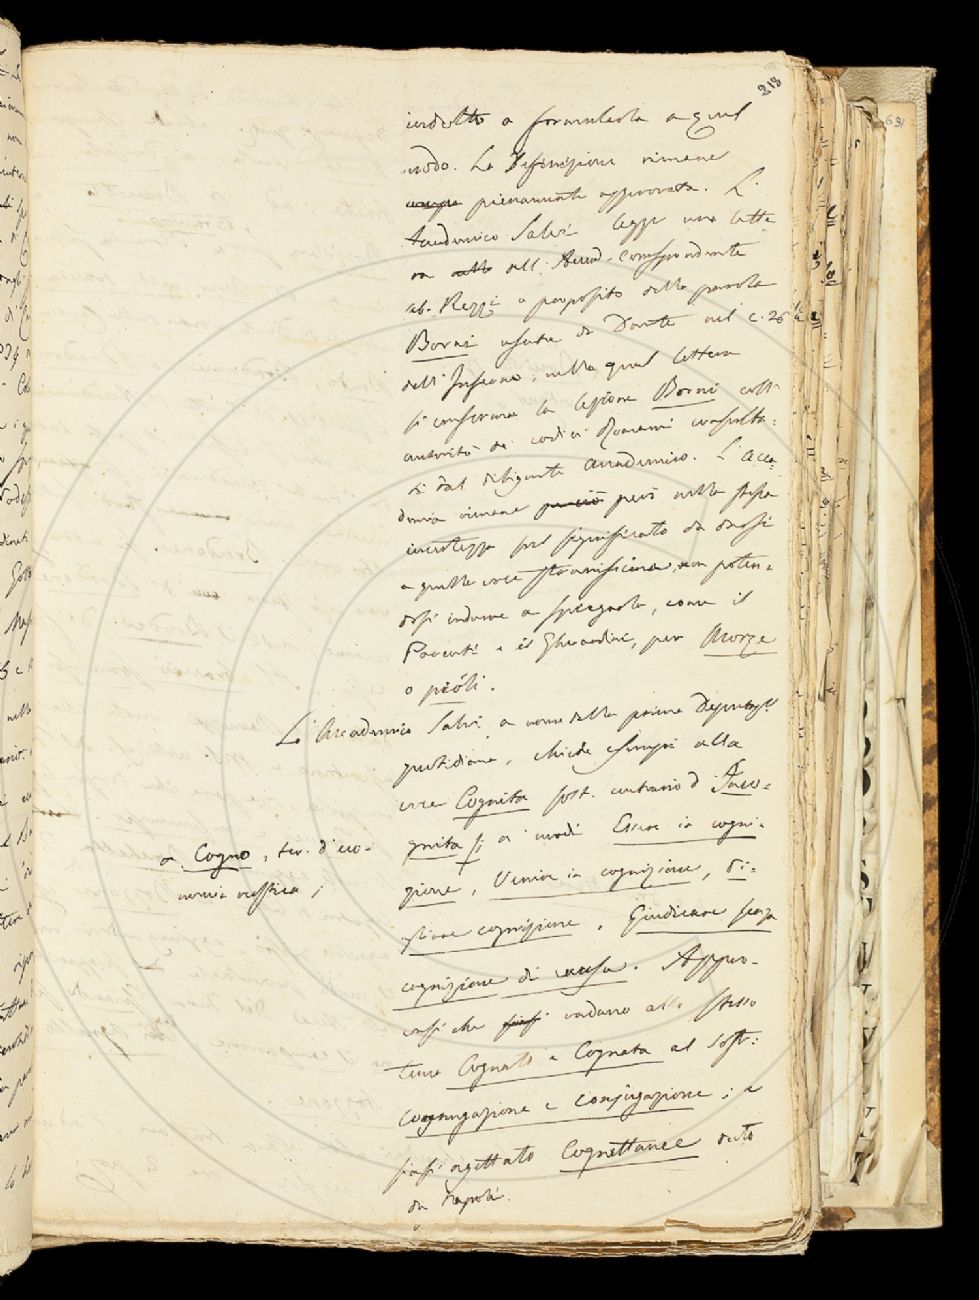 218
indotto a formularla a quel
modo. La Definizione rimane
pienamente approvata. L'
Accademico Salvi legge una lette-
ra dell'Accad. corrispondente
ab. Rezzi a proposito della parola
Borni usata da Dante nel c. 26
dell'Inferno; nella qual lettera
si conferma la lezione Borni coll'
autorità de' codici Romani consulta-
ti dal diligente accademico. L'Acca-
demia rimane però nella stessa
incertezza sul significato da darsi
a quella voce stranissima, non poten-
dosi indurre a spiegarla, come il
Parenti e il Gherardini, per Morze
o piòli.
L'Accademico Salvi a nome della prima Deputaz.e
quotidiana, chiede esempi alla
voce Cognita sost. contrario d'Inco-
gnita; ai modi Essere in cogni-
a Cogno, ter. d'eco-
nomia rustica;
zione, Venire in cognizione, Di-
cognizione, Giudicare senza
cognizione di causa. Appro-
vasi che vadano allo stesso
tema Cognato e Cognata al sost.
Cognugazione e conjugazione; e
siasi rigettato Cognettance
da Napoli.